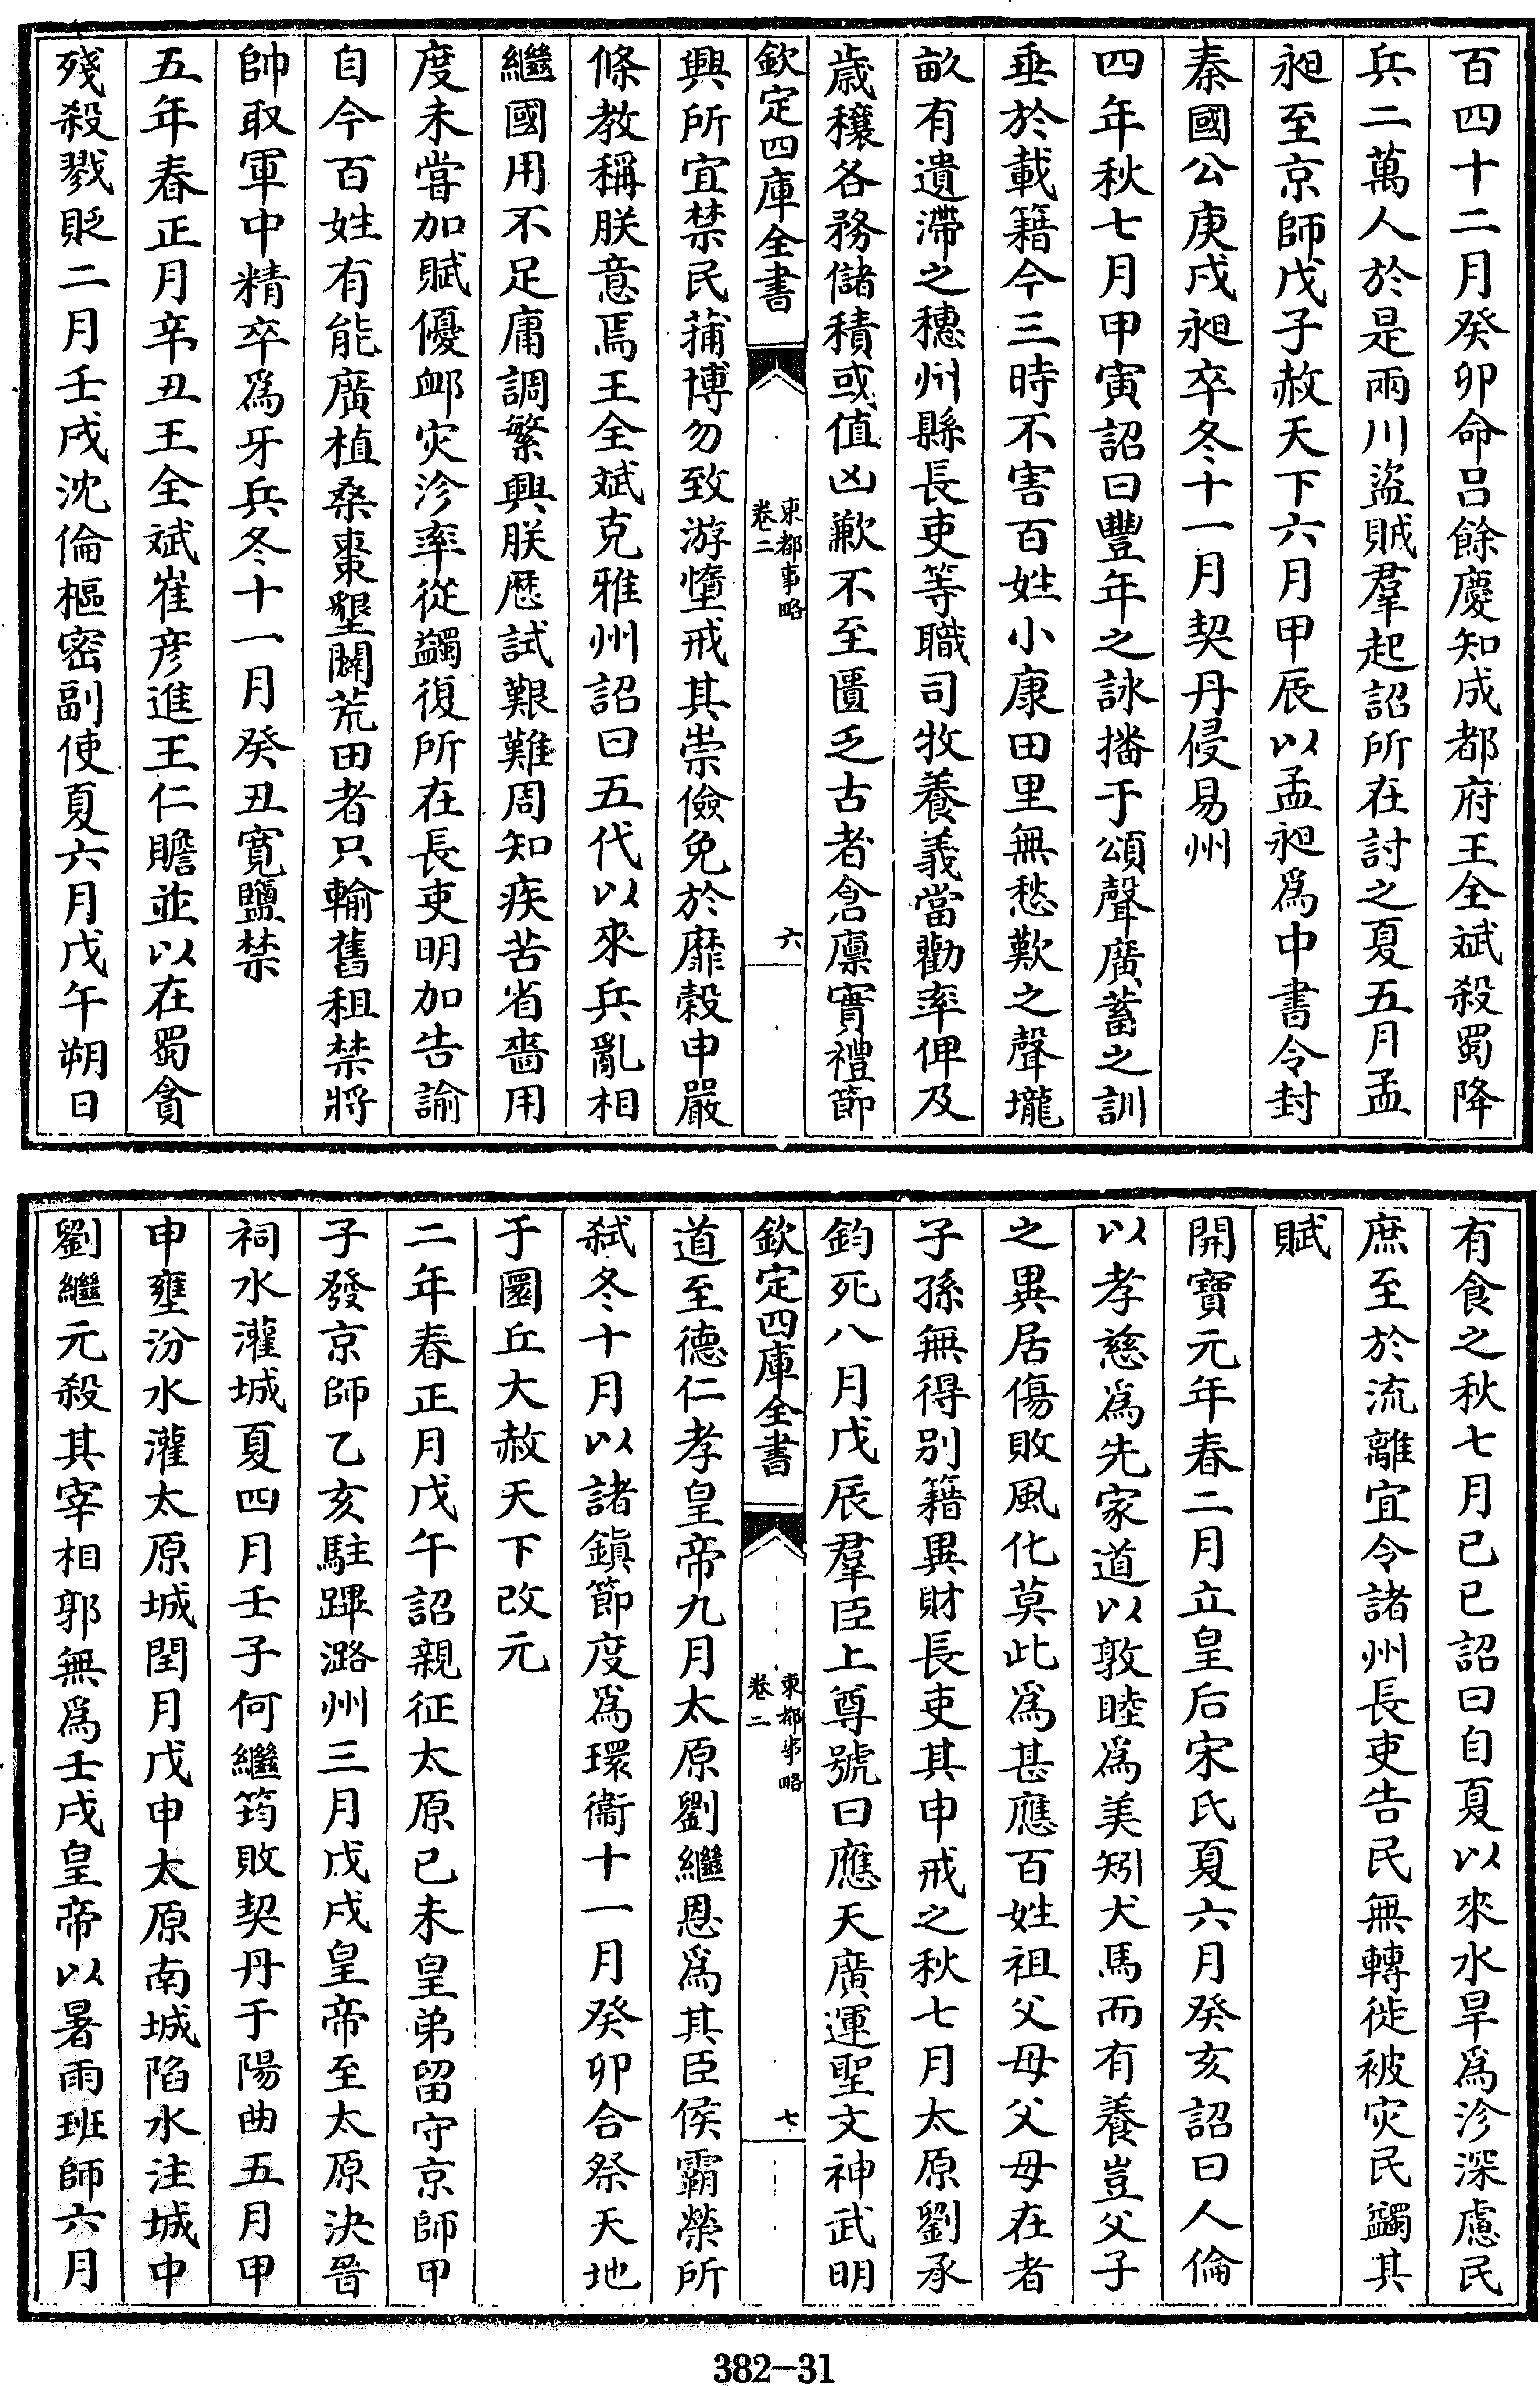 百四十二月癸卯命吕餘慶知成都府王全斌殺蜀降
兵二萬人於是兩川盜賊羣起詔所在討之夏五月孟
昶至京師戊子赦天下六月甲辰以孟昶爲中書令封
秦國公庚戌昶卒冬十一月契丹侵易州
四年秋七月甲寅詔曰豐年之詠播于頌聲廣蓄之訓
垂於載籍今三時不害百姓小康田里無愁歎之聲壠
畝有遺滯之穗州縣長吏等職司牧養義當勸率俾及
歳穰各務儲積或值凶歉不至匱乏古者倉廩實禮節
欽定四庫全書
東都事略
卷二
六
興所宜禁民蒱博勿致游惰戒其崇儉免於靡穀申嚴
條教稱朕意焉王全斌克雅州詔曰五代以來兵亂相
繼國用不足庸調繁興朕歴試艱難周知疾苦省嗇用
度未嘗加賦優卹灾沴率從蠲復所在長吏明加告諭
自今百姓有能廣植桑棗墾闢荒田者只輸舊租禁將
帥取軍中精卒爲牙兵冬十一月癸丑寛鹽禁
五年春正月辛丑王全斌崔彦進王仁贍並以在蜀貪
殘殺戮貶二月壬戌沈倫樞密副使夏六月戊午朔日
有食之秋七月已巳詔曰自夏以來水旱爲沴深慮民
庶至於流離宜令諸州長吏告民無轉徙被灾民蠲其
賦
開寶元年春二月立皇后宋氏夏六月癸亥詔曰人倫
以孝慈爲先家道以敦睦爲美矧犬馬而有養豈父子
之異居傷敗風化莫此爲甚應百姓祖父母父母在者
子孫無得别籍異財長吏其申戒之秋七月太原劉承
鈞死八月戊辰羣臣上尊號曰應天廣運聖文神武明
欽定四庫全書
東都事略
卷二
七
道至德仁孝皇帝九月太原劉繼恩爲其臣侯霸榮所
弑冬十月以諸鎮節度爲環衞十一月癸卯合祭天地
于圜丘大赦天下改元
二年春正月戊午詔親征太原已未皇弟留守京師甲
子發京師乙亥駐蹕潞州三月戊戌皇帝至太原決晉
祠水灌城夏四月壬子何繼筠敗契丹于陽曲五月甲
申壅汾水灌太原城閏月戊申太原南城陷水注城中
劉繼元殺其宰相郭無爲壬戌皇帝以暑雨班師六月
382-31